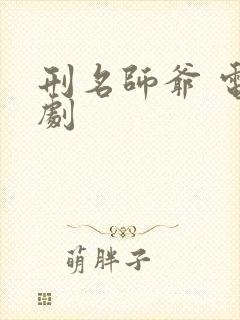 刑名師爺 電
劇
萌胖子